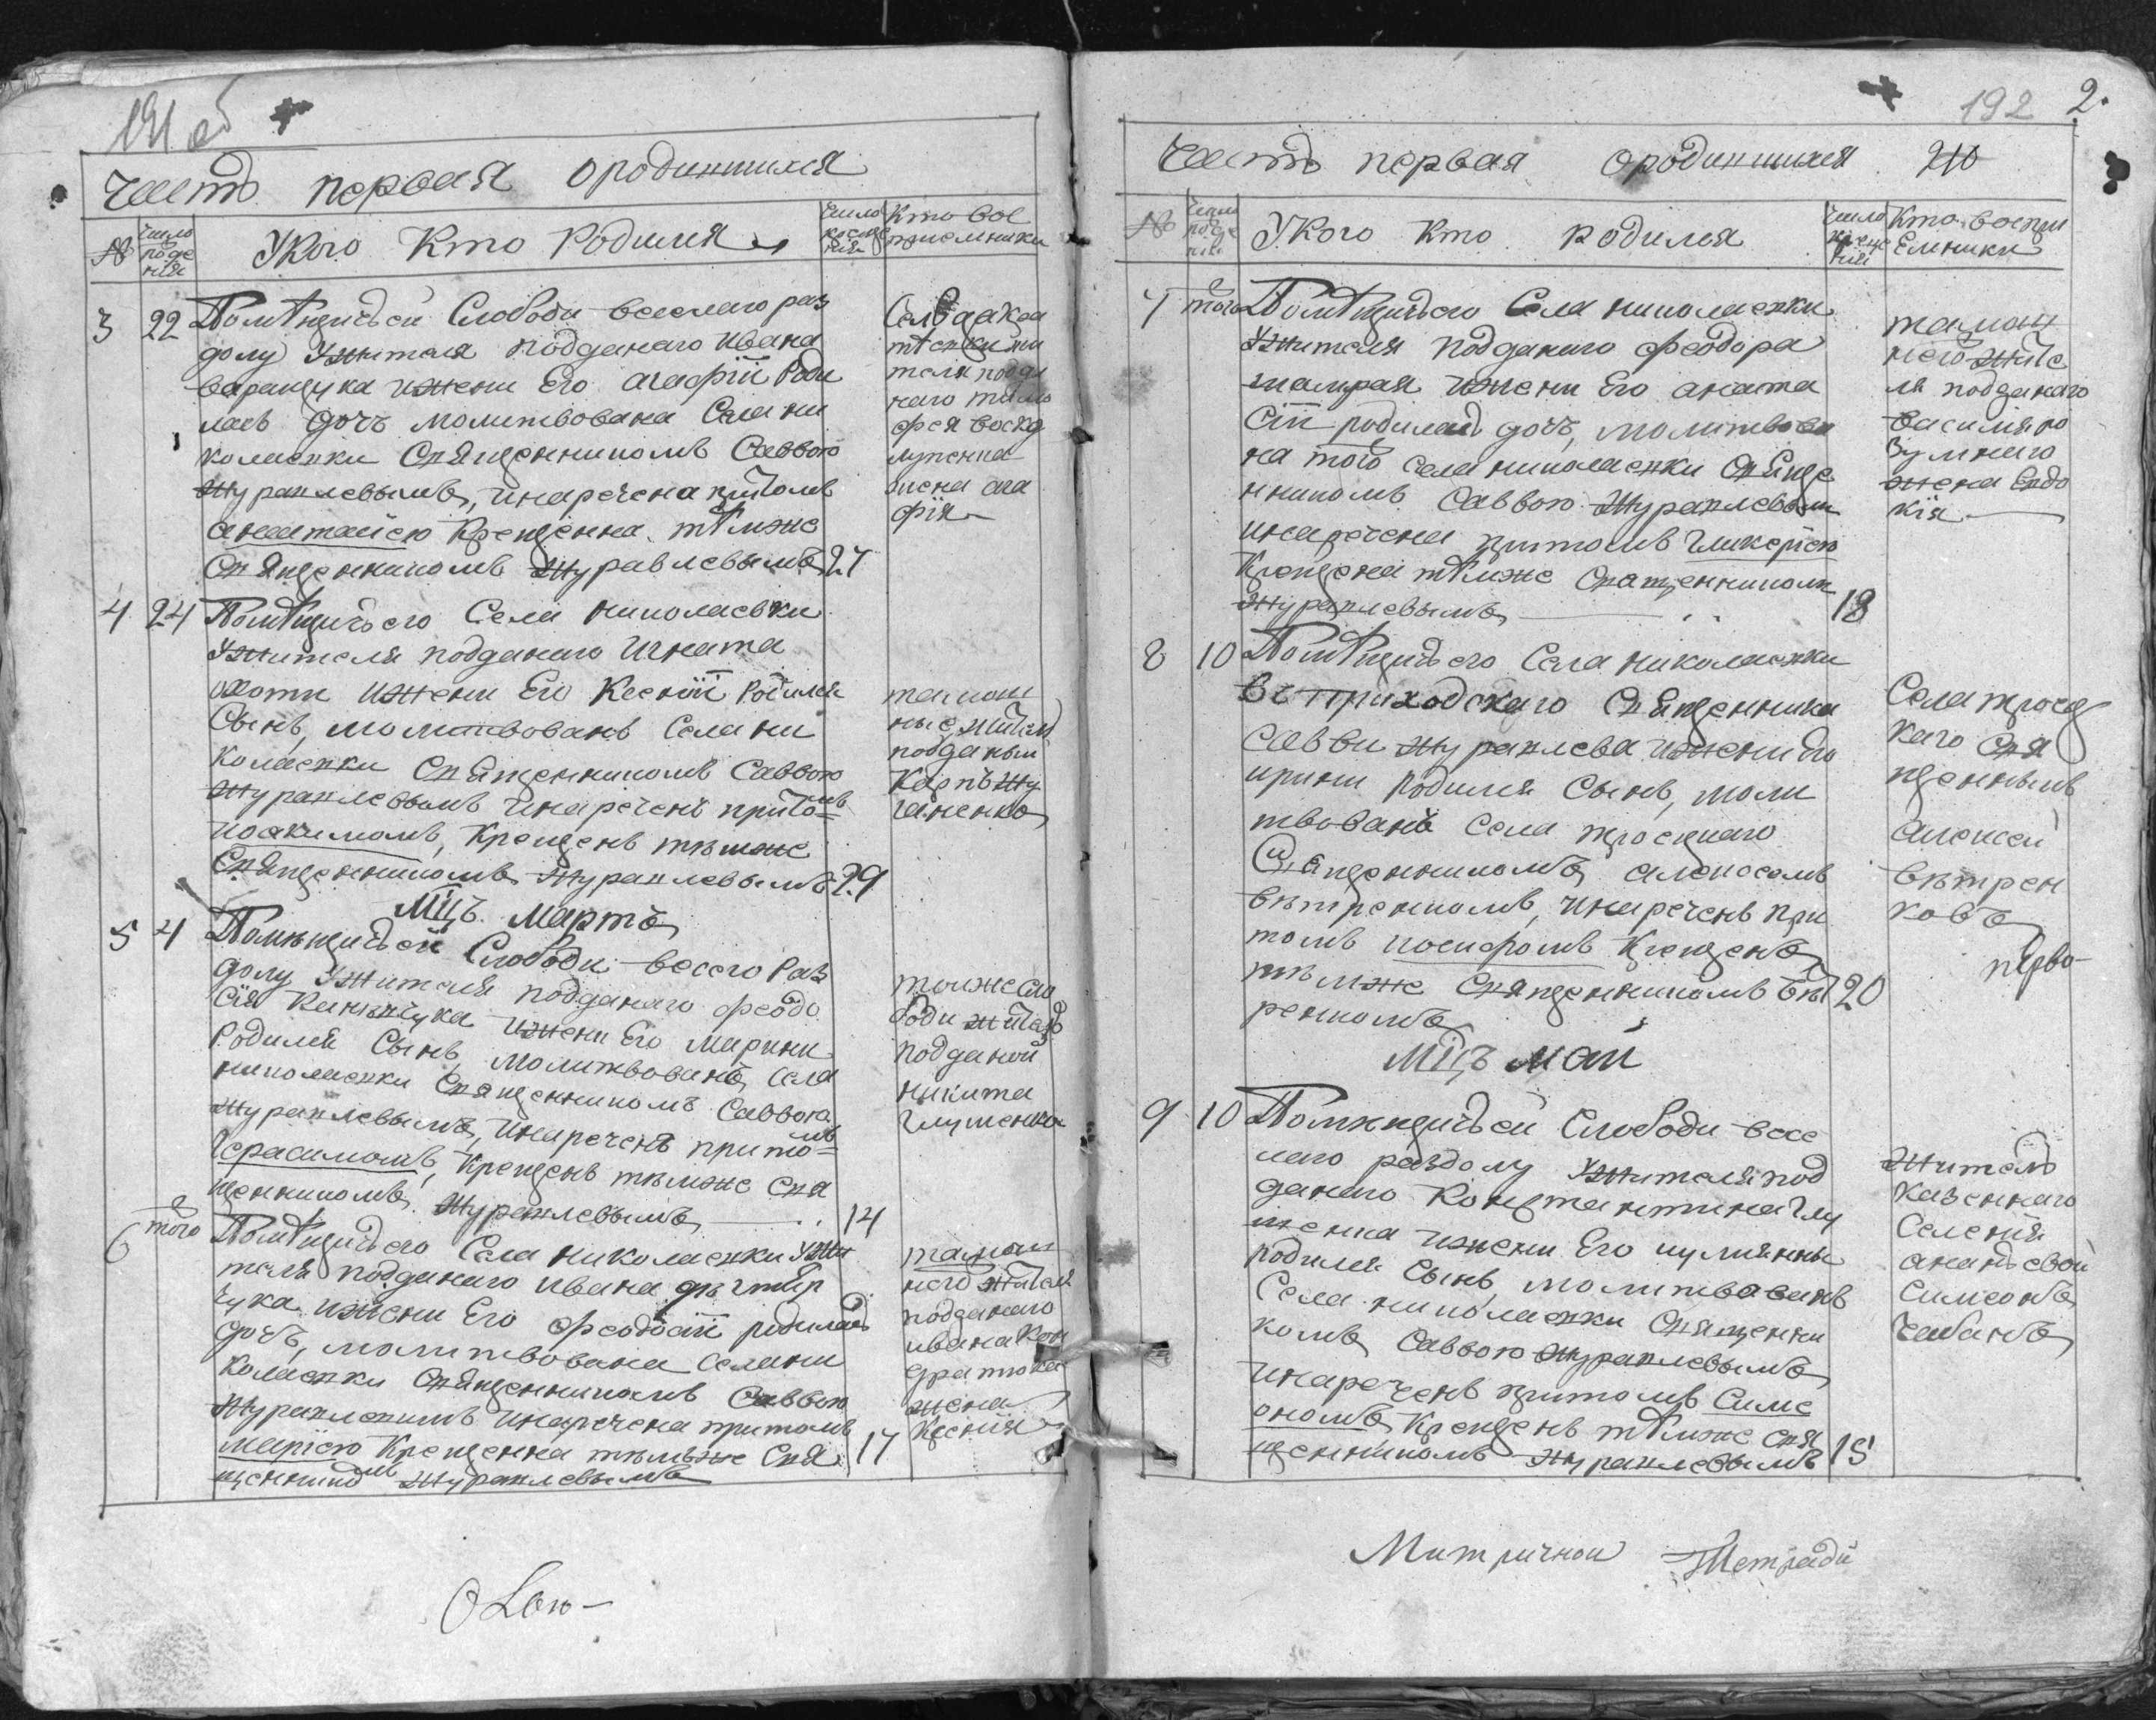 191 об
Часть первая ородившихся
№
Число рожде нія
У Кого Кто Родился
Число креще нія
Кто вос приемники
3 22
Помѣщичьей Слободи веселаго раз
долу Ужителя подданаго Ивана
варащука ижени Его агафіи Роди
лась дочъ молитвована Села ни
колаевки Священникомъ Саввою
Журавлевымъ, инаречена притомъ
анастасією Крещенна тѣмже
Священникомъ Журавлевымъ 27
жена ага
фія
4 24
Помѣщичьего Села николаевки
Ужителя подданаго Игната
охоти ижени Его Ксеніи Родился
Сынъ, молитвованъ Села ни
колаевки Священникомъ Саввою
Журавлевымъ инареченъ притомъ
иоакимомъ, Крещенъ тѣмже
Священникомъ Журавлевымъ 29
тамош
ные житель
подданый
Карпъ Жу
ганенко
Мцъ Мартъ
5 4
Помѣщичьей Слободи весего Раз
долу Ужителя подданаго феодо
сія ижени Его Марини
Родился Сынъ молитвованъ, Села
николаевки Священникомъ Саввою
Журавлевымъ, инареченъ притомъ
Герасимомъ, Крещенъ тѣмже Свя
щенникомъ Журавлевымъ 14
тоижесло
боди житель
подданой
никита
Глушенко
6 того
Помѣщичьего Села николаевки Ужи
теля подданаго ивана
чука ижени Его Феодосіи родилась
дочъ, молитвована Села ни
колаевки Священникомъ Саввою
Журавлевимъ инаречена притомъ
марією Крещенна тѣмъже Свя 17
щенникомъ Журавлевымъ
тамош
него жителя
подданаго
ивана Кон
дратюка
жена
Ксенія
192 2.
Часть первая ородившихся 210
№
Число рожде нія
У Кого Кто родился
Число креще нія
Кто воспри Емники
7 того
Помѣщичьего Села николаевки
Ужителя подданаго феодора
шамрая ижени Его анаста
сіи родилась дочъ, молитвова
на того села николаевки Священ
никомъ Саввою Журавлевым
инаречена притомъ Гликерією
Крещена тѣмже Священникомъ
Журавлевымъ 18
тамош
него жите
ля подданаго
василія ро
зумнаго
жена Евдо
кія
8 10
Помѣщичьего Села николаевки
приходскаго Священника
Саввы Журавлева ижени Его
ирини Родился Сынъ, моли
твованъ Села троецкаго
Священникомъ алексеемъ
вѣтренкомъ, инареченъ при
томъ иосифомъ Крещенъ
тѣмже Священникомъ вѣт 20
ренкомъ
Села троец
каго Свя
щенникъ
алексей
вѣтрен
ковъ
перво-
Мцъ май
9 10
Помѣщичьей Слободи весе
лаго раздолу Ужителя под
данаго Константина Глу
шенка ижени Его иулиянны
родился Сынъ молитвованъ
Села николаевки Священни
комъ Саввою Журавлевымъ
инареченъ притомъ Симе
ономъ Крещенъ тѣмже Свя
щенникомъ Журавлевымъ 15
Житель
казеннаго
Селения
ананьевой
Симеонъ
Чабанъ
Митричной Тетради